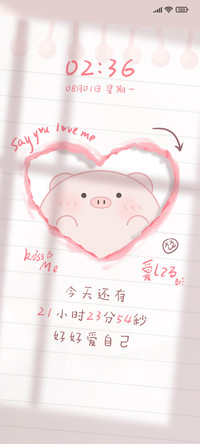 02:36
08月01日 星期一
Say you love me
kiss
Me
愛してる
今天还有
21小时23分54秒
好好爱自己